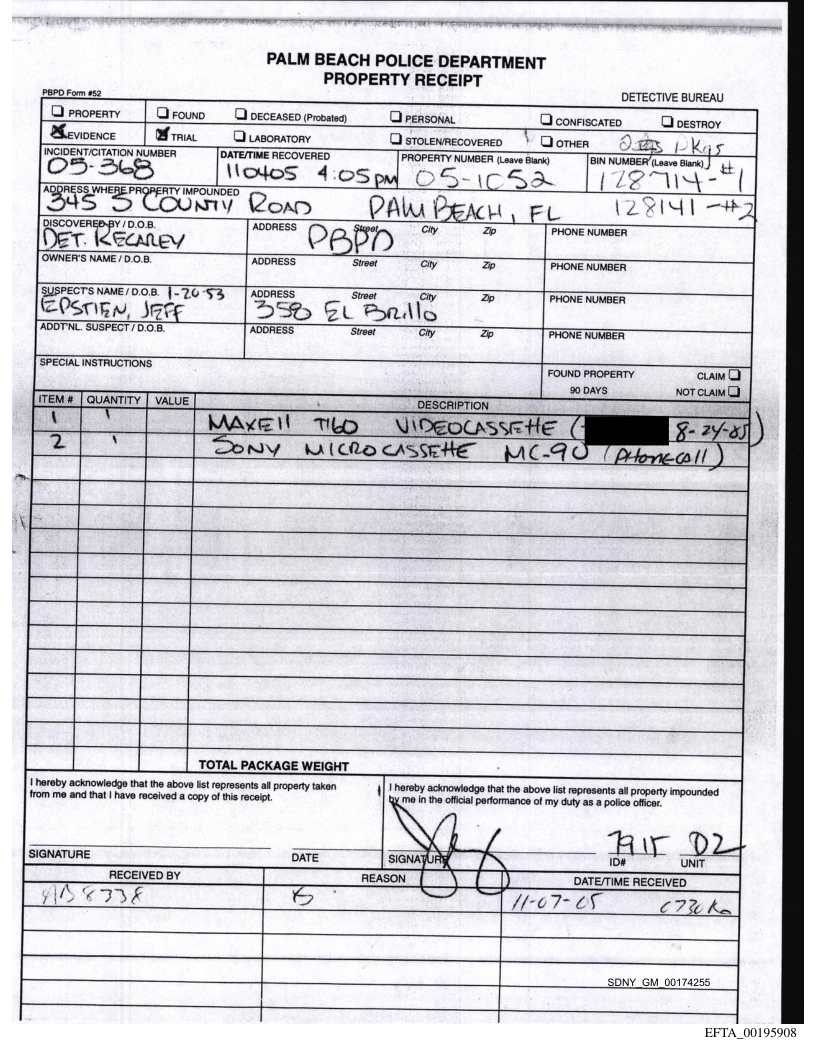 PALM BEACH POLICE DEPARTMENT
PROPERTY RECEIPT
PBPD Form #52
DETECTIVE BUREAU
PROPERTY FOUND DECEASED (Probated) PERSONAL CONFISCATED DESTROY
EVIDENCE TRIAL LABORATORY STOLEN/RECOVERED OTHER
INCIDENT/CITATION NUMBER DATE/TIME RECOVERED PROPERTY NUMBER (Leave Blank) BIN NUMBER (Leave Blank)
05-368 110405 4:05pm 05-1052 128714-#1
ADDRESS WHERE PROPERTY IMPOUNDED
345 S COUNTY ROAD PALM BEACH, FL 128141-#2
DISCOVERED BY / D.O.B. ADDRESS Street City Zip PHONE NUMBER
DET. RECAREY PBPD
OWNER'S NAME / D.O.B. ADDRESS Street City Zip PHONE NUMBER
SUSPECT'S NAME / D.O.B. 1-20-53 ADDRESS Street City Zip PHONE NUMBER
EPSTIEN, JEFF 358 EL Brillo
ADDT'NL. SUSPECT / D.O.B. ADDRESS Street City Zip PHONE NUMBER
SPECIAL INSTRUCTIONS
FOUND PROPERTY CLAIM
90 DAYS NOT CLAIM
ITEM # QUANTITY VALUE DESCRIPTION
1 1 MAXEll T160 VIDEOCASSETTE ( 8-24-85)
2 1 SONY MICROCASSETTE MC-90 (PHONECAll)
TOTAL PACKAGE WEIGHT
I hereby acknowledge that the above list represents all property taken
from me and that I have received a copy of this receipt.
I hereby acknowledge that the above list represents all property impounded
by me in the official performance of my duty as a police officer.
7915 D2
SIGNATURE DATE SIGNATURE ID# UNIT
RECEIVED BY REASON DATE/TIME RECEIVED
AB 8338 11-07-05
SDNY_GM_00174255
EFTA_00195908